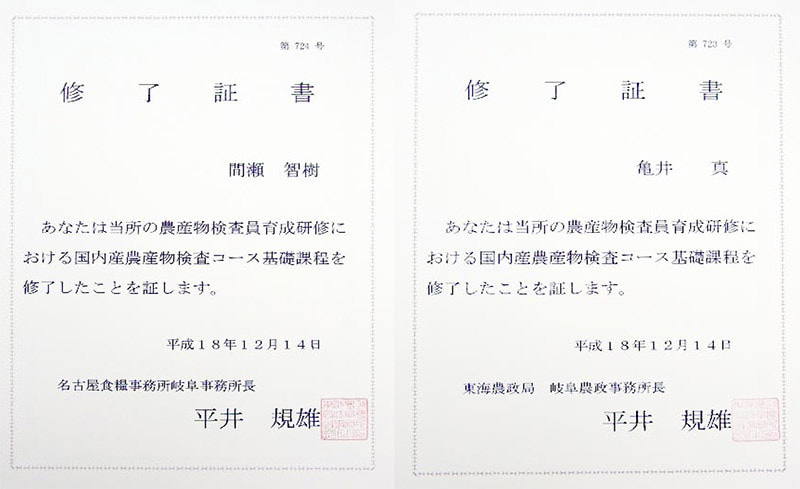 第 724 号
修了証書
間瀬 智樹
あなたは当所の農産物検査員育成研修に
おける国内産農産物検査コース基礎課程を
修了したことを証します。
平成18年12月14日
名古屋食糧事務所岐阜事務所長
平井 規雄
第 723 号
修了証書
亀井 真
あなたは当所の農産物検査員育成研修に
おける国内産農産物検査コース基礎課程を
修了したことを証します。
平成18年12月14日
東海農政局 岐阜農政事務所長
平井 規雄